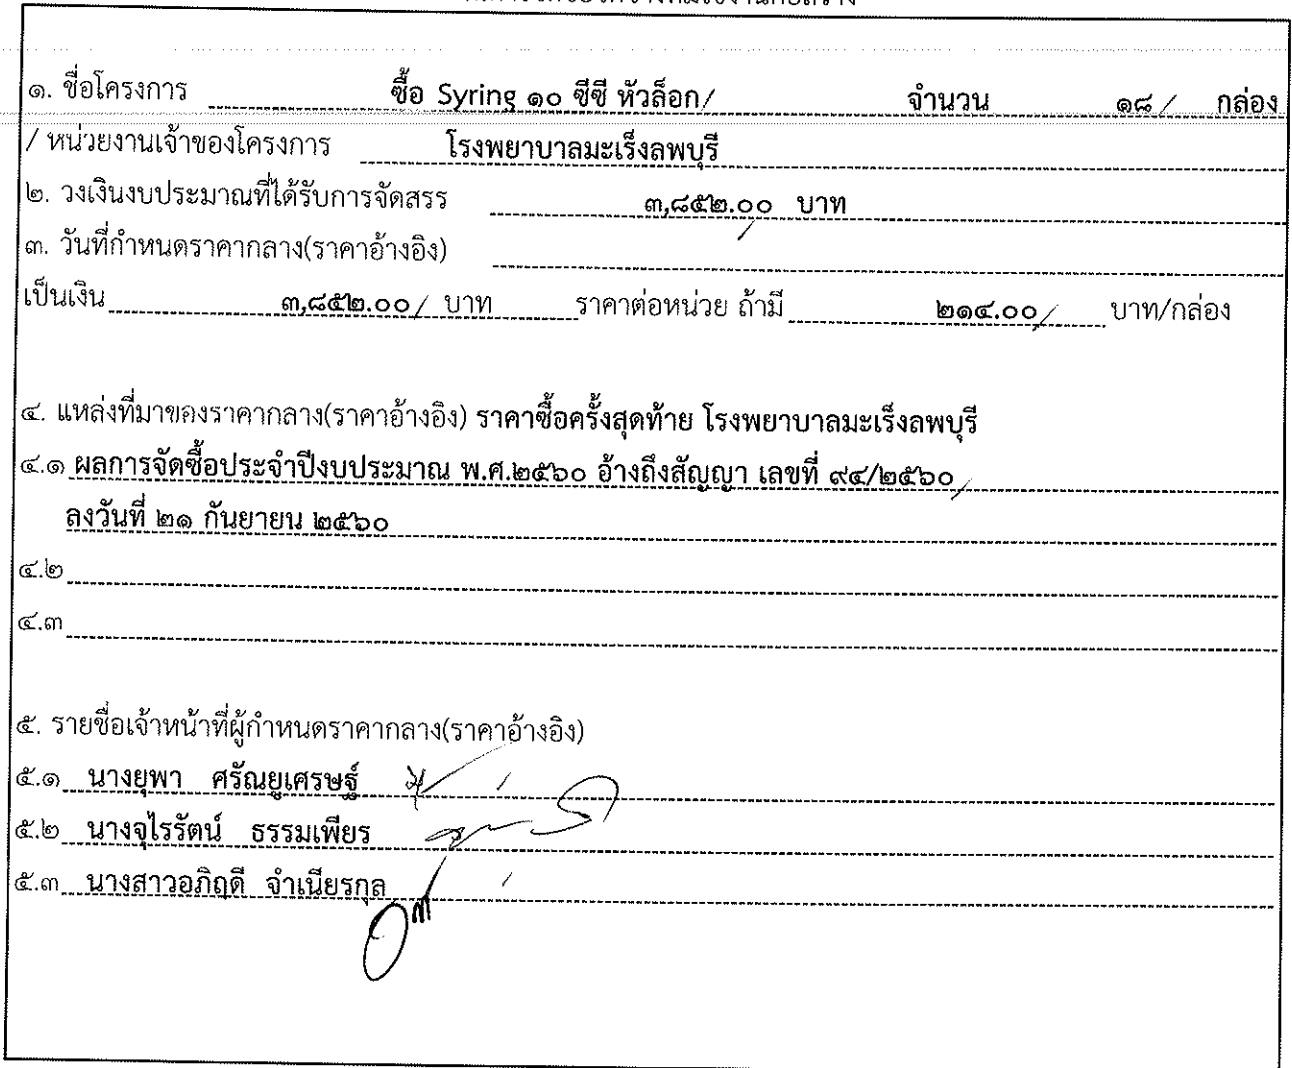 ๑. ชื่อโครงการ ซื้อ Syring ๑๐ ซีซี หัวล็อก/ จำนวน ๑๘/ กล่อง
/ หน่วยงานเจ้าของโครงการ โรงพยาบาลมะเร็งลพบุรี
๒. วงเงินงบประมาณที่ได้รับการจัดสรร ๓,๘๕๒.๐๐ บาท
๓. วันที่กำหนดราคากลาง(ราคาอ้างอิง)
เป็นเงิน ๓,๘๕๒.๐๐/ บาท ราคาต่อหน่วย ถ้ามี ๒๑๔.๐๐/ บาท/กล่อง
๔. แหล่งที่มาของราคากลาง(ราคาอ้างอิง) ราคาซื้อครั้งสุดท้าย โรงพยาบาลมะเร็งลพบุรี
๔.๑ ผลการจัดซื้อประจำปีงบประมาณ พ.ศ.๒๕๖๐ อ้างถึงสัญญา เลขที่ ๙๔/๒๕๖๐/
ลงวันที่ ๒๑ กันยายน ๒๕๖๐
๔.๒
๔.๓
๕. รายชื่อเจ้าหน้าที่ผู้กำหนดราคากลาง(ราคาอ้างอิง)
๕.๑ นางยุพา ศรัณยูเศรษฐ์
๕.๒ นางจุไรรัตน์ ธรรมเพียร
๕.๓ นางสาวอภิฤดี จำเนียรกุล